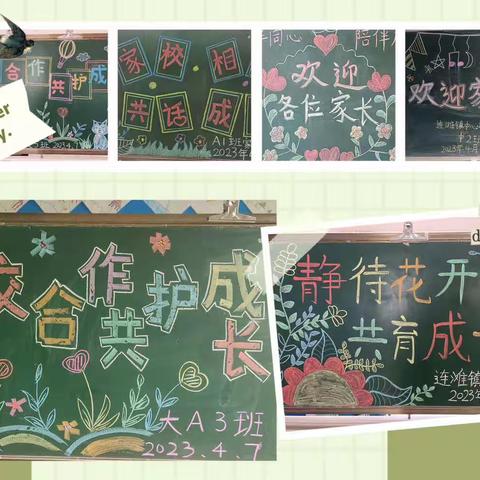 合作
共护成
家校相
共话成
A1班
2023年
同心
陪伴
欢迎
各位家长
欢迎家
连滩镇中心
2023年4月
校合作
共护成长
大A3班
2023.4.7
静待花开
共育成
连滩镇
2023年